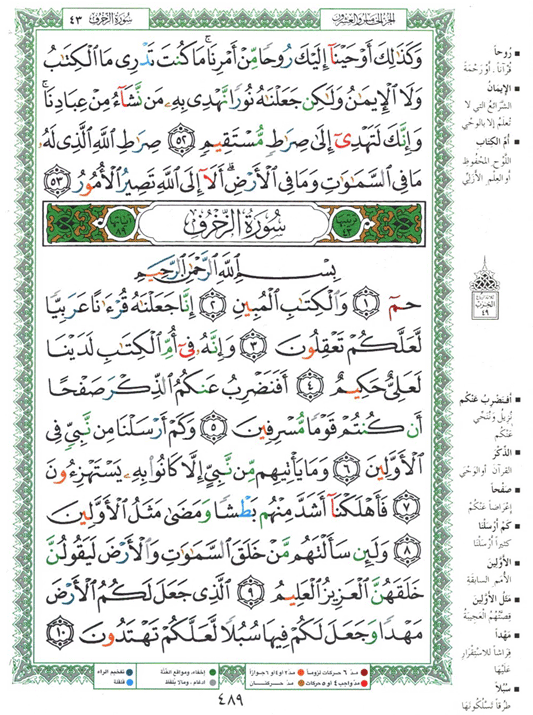 سُورَةُ الزُّخْرُفِ ٤٣
الجزء الخامس والعشرون
وَكَذَٰلِكَ أَوْحَيْنَآ إِلَيْكَ رُوحًا مِّنْ أَمْرِنَا ۚ مَا كُنتَ تَدْرِى مَا ٱلْكِتَٰبُ
وَلَا ٱلْإِيمَٰنُ وَلَٰكِن جَعَلْنَٰهُ نُورًا نَّهْدِى بِهِۦ مَن نَّشَآءُ مِنْ عِبَادِنَا ۚ
وَإِنَّكَ لَتَهْدِىٓ إِلَىٰ صِرَٰطٍ مُّسْتَقِيمٍ ٥٢ صِرَٰطِ ٱللَّهِ ٱلَّذِى لَهُۥ
مَا فِى ٱلسَّمَٰوَٰتِ وَمَا فِى ٱلْأَرْضِ ۗ أَلَآ إِلَى ٱللَّهِ تَصِيرُ ٱلْأُمُورُ ٥٣
ترتيبها ٤٣ سُورَةُ الزُّخْرُفِ آياتها ٨٩
بِسْمِ ٱللَّهِ ٱلرَّحْمَٰنِ ٱلرَّحِيمِ
حمٓ ١ وَٱلْكِتَٰبِ ٱلْمُبِينِ ٢ إِنَّا جَعَلْنَٰهُ قُرْءَٰنًا عَرَبِيًّا
لَّعَلَّكُمْ تَعْقِلُونَ ٣ وَإِنَّهُۥ فِىٓ أُمِّ ٱلْكِتَٰبِ لَدَيْنَا
لَعَلِىٌّ حَكِيمٌ ٤ أَفَنَضْرِبُ عَنكُمُ ٱلذِّكْرَ صَفْحًا
أَن كُنتُمْ قَوْمًا مُّسْرِفِينَ ٥ وَكَمْ أَرْسَلْنَا مِن نَّبِىٍّ فِى
ٱلْأَوَّلِينَ ٦ وَمَا يَأْتِيهِم مِّن نَّبِىٍّ إِلَّا كَانُوا۟ بِهِۦ يَسْتَهْزِءُونَ
٧ فَأَهْلَكْنَآ أَشَدَّ مِنْهُم بَطْشًا وَمَضَىٰ مَثَلُ ٱلْأَوَّلِينَ
٨ وَلَئِن سَأَلْتَهُم مَّنْ خَلَقَ ٱلسَّمَٰوَٰتِ وَٱلْأَرْضَ لَيَقُولُنَّ
خَلَقَهُنَّ ٱلْعَزِيزُ ٱلْعَلِيمُ ٩ ٱلَّذِى جَعَلَ لَكُمُ ٱلْأَرْضَ
مَهْدًا وَجَعَلَ لَكُمْ فِيهَا سُبُلًا لَّعَلَّكُمْ تَهْتَدُونَ ١٠
رُوحاً
قرآناً، أو رَحْمَةً
الإيمانُ
الشرائعُ التي لا
تُعلمُ إلا بالوحْيِ
أمّ الكِتاب
اللّوْحِ المحْفُوظِ
أو العِلْمِ الأزليِّ
الحزب
٤٩
أفنضربُ عنكم
نُزِيلُ ونُنَحِّي
عنكم
الذّكْر
القرآن أو الوَحْيَ
صَفْحاً
إعْرَاضاً عَنْكُمْ
كمْ أرْسَلْنا
كثيراً أرْسَلْنَا
الأوّلِينَ
الأمَمِ السابقةِ
مَثَلُ الأوّلِين
قِصّتُهُمُ العَجيبَةُ
مَهْداً
فِراشاً للاستِقْرارِ
عَليْها
سُبُلاً
طُرُقاً تَسْلُكُونَها
مدّ ٦ حركات لزوماً
مدّ ٢ أو ٤ أو ٦ جوازاً
إخفاء، ومواقع الغُنّة
تفخيم الراء
مدّ واجب ٤ أو ٥ حركات
مدّ حركتان
ادغام، وما لا يُلفظ
قلقلة
٤٨٩